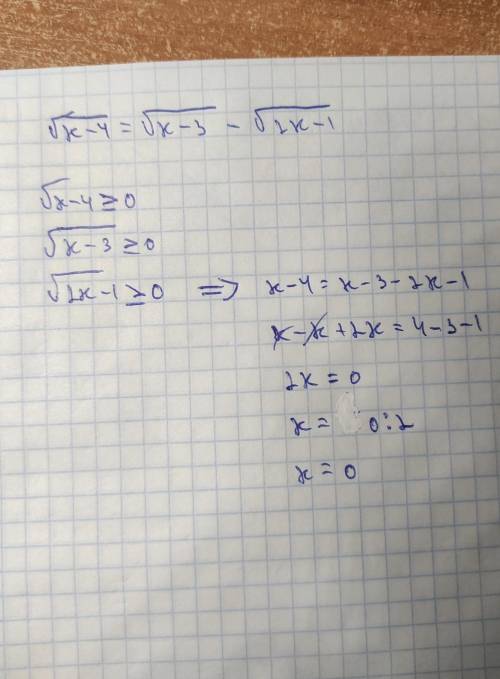 √x-4 = √x-3 - √2x-1
√x-4 ≥ 0
√x-3 ≥ 0
√2x-1 ≥ 0 => x-4 = x-3-2x-1
x-x+2x = 4-3-1
2x = 0
x = 0:2
x = 0